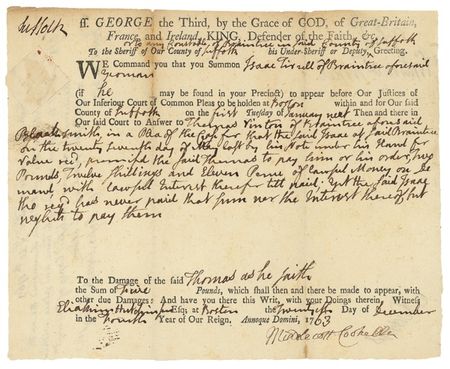 Suffolk
ss. GEORGE the Third, by the Grace of GOD, of Great-Britain,
France, and Ireland, KING, Defender of the Faith, &c.
or to any Constable of Braintree in said County of Suffolk
To the Sheriff of Our County of Suffolk his Under-Sheriff or Deputy, Greeting.
WE Command you that you Summon Isaac Tirrell of Braintree aforesaid
Yeoman
(if he may be found in your Precinct) to appear before Our Justices of
Our Inferiour Court of Common Pleas to be holden at Boston within and for Our said
County of Suffolk on the first Tuesday of January next Then and there in
Our said Court to Answer to Thomas Vinton of Braintree aforesaid
Blacksmith, in a Plea of the Case for that the said Isaac at said Braintree
on the twenty seventh day of last by his Note under his Hand for
Value recd, promised the said Thomas to pay him or his order, two
Pounds Twelve Shillings and Eleven Pence of Lawful Money on De
mand with Lawful Interest therefor till paid. Yet the said Isaac
tho' reqd has never paid that sum nor the Interest thereof but
neglects to pay them
To the Damage of the said Thomas as he saith
the Sum of five Pounds, which shall then and there be made to appear, with
other due Damages: And have you there this Writ, with your Doings therein. Witness
Eliakim Hutchinson Esq; at Boston the twentyfifth Day of December
in the fourth Year of Our Reign. Annoque Domini, 1763
Middlecott Cooke